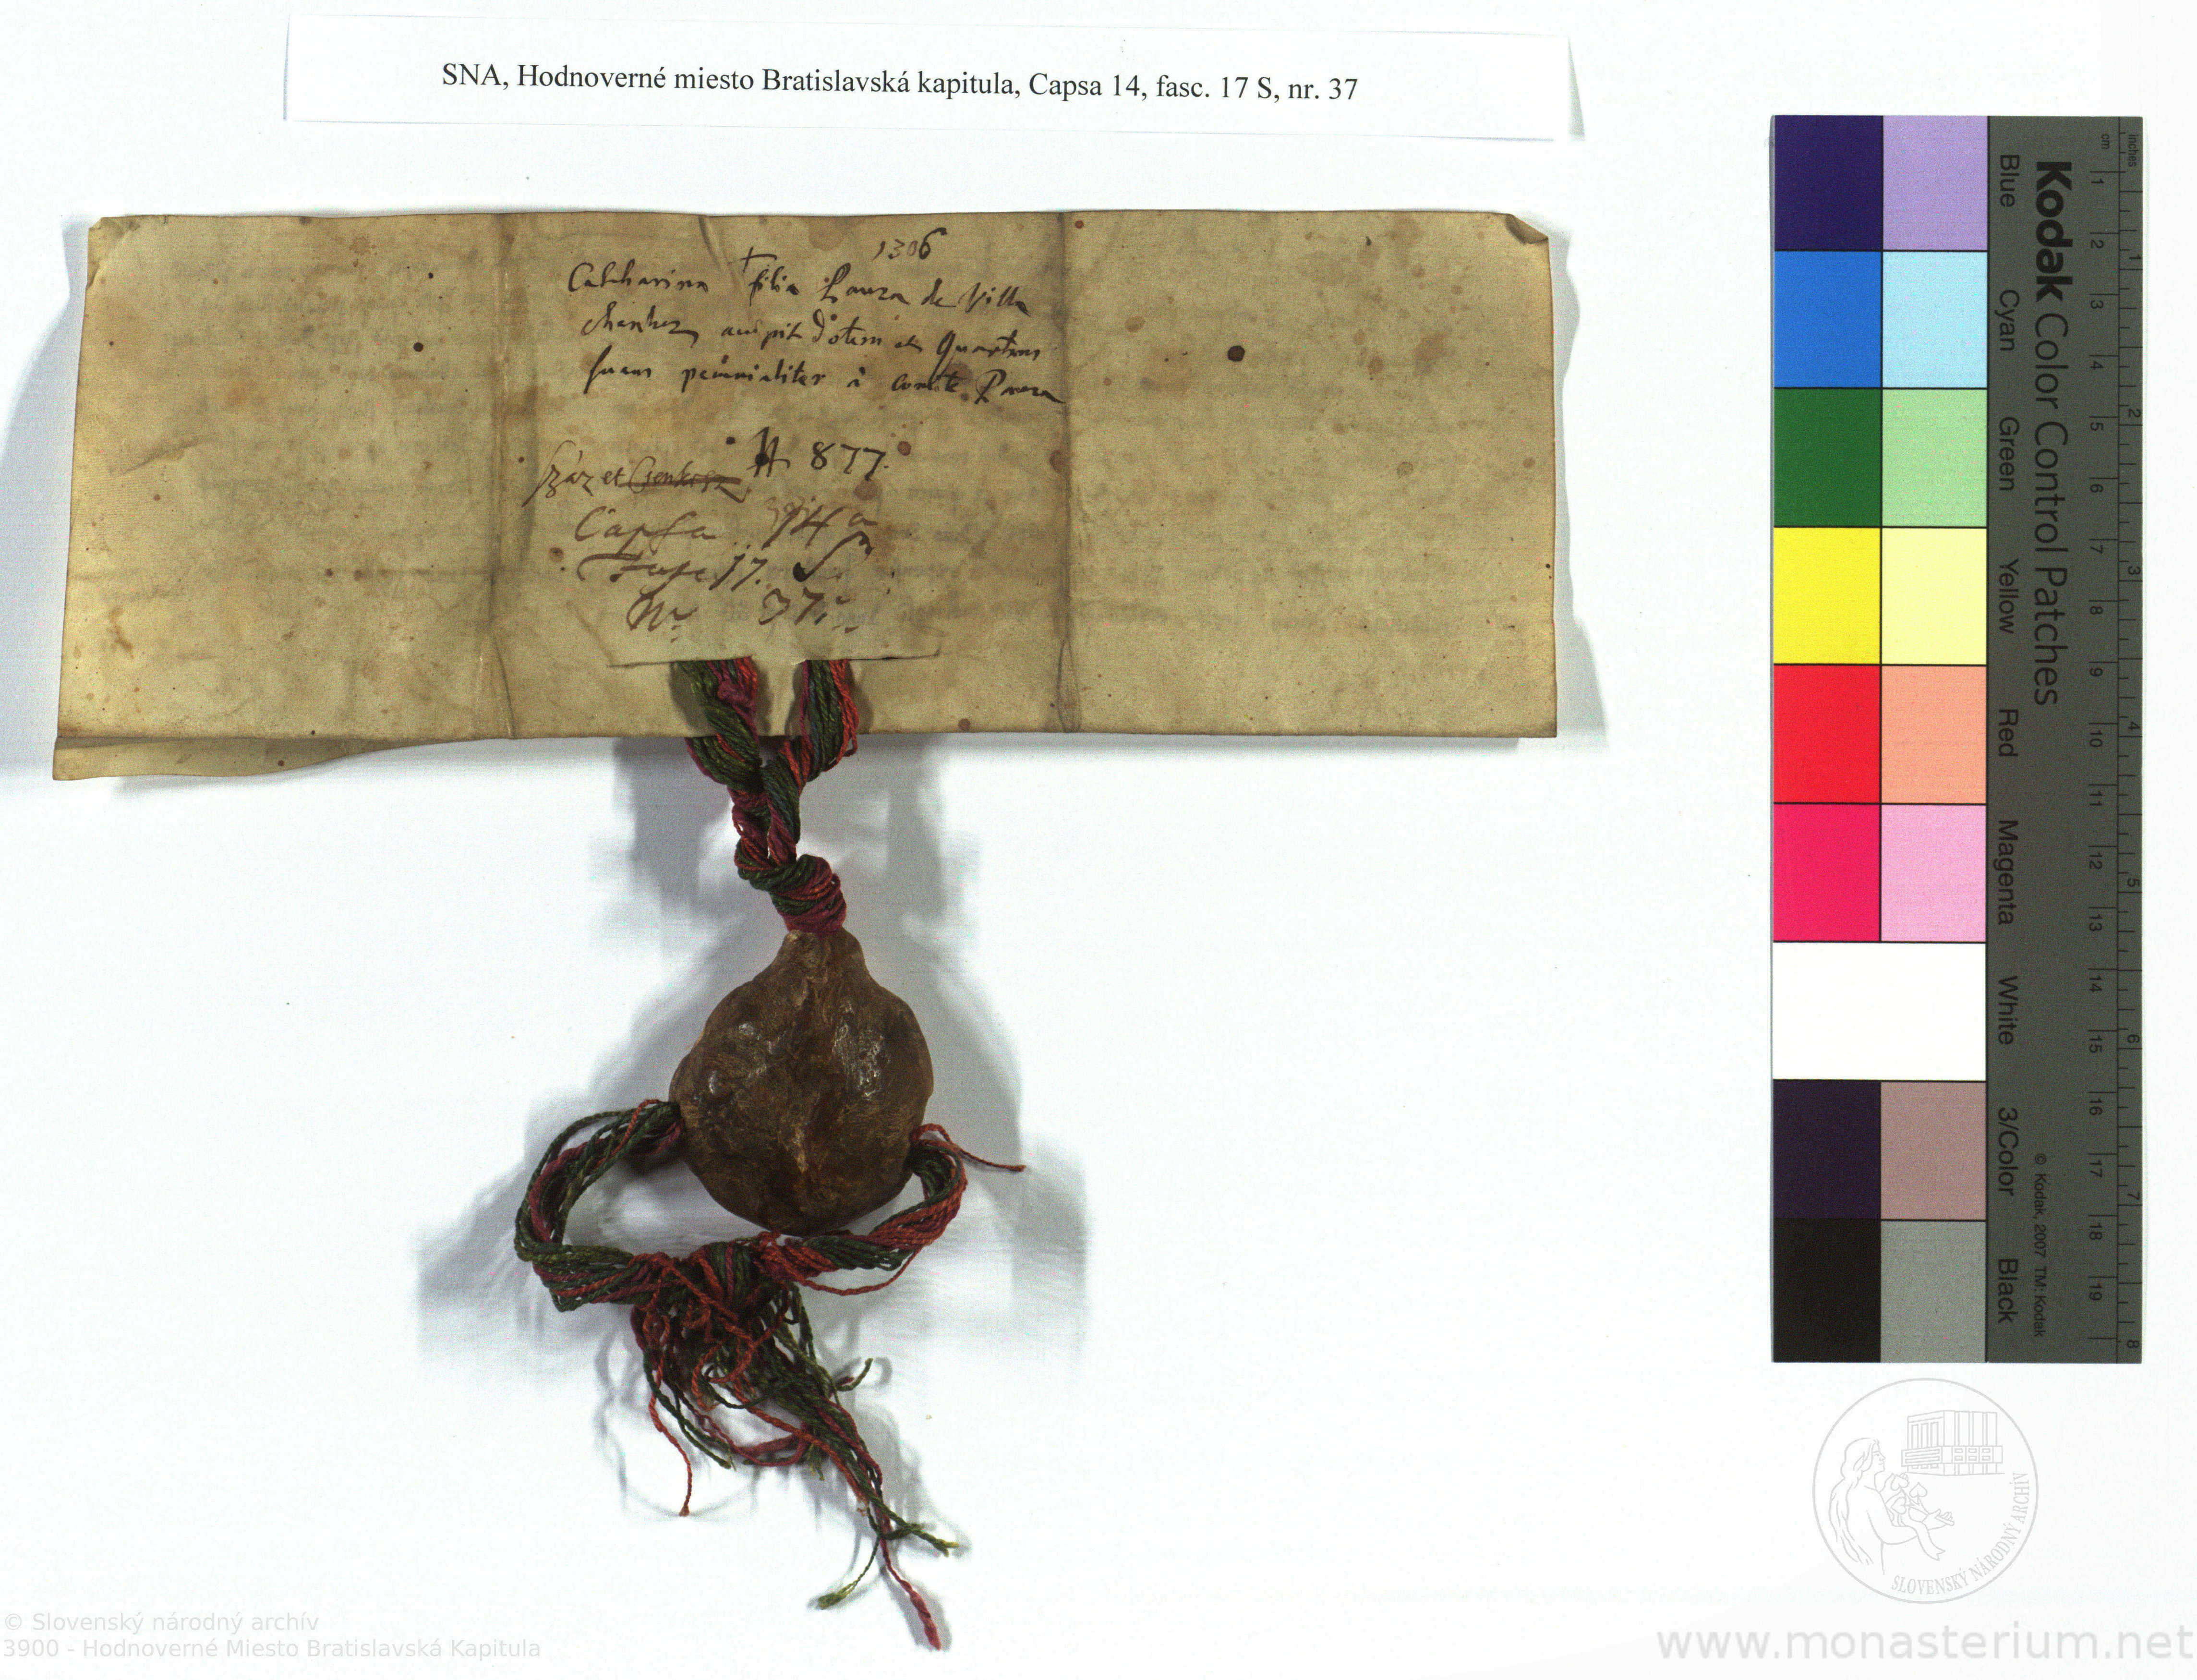 SNA, Hodnoverné miesto Bratislavská kapitula, Capsa 14, fasc. 17 S, nr. 37
1306
Catharina filia Pouza de Villa
chenkez accipit Dotem et Quartam
suam pecunialiter à comite Pouza
A 877.
Száz et Csenkesz
Capsa 14a
Fasc 17. S
Nr 37.
Kodak Color Control Patches
Blue
Cyan
Green
Yellow
Red
Magenta
White
3/Color
Black
© Kodak, 2007 TM: Kodak
inches
1 2 3 4 5 6 7 8
cm
1 2 3 4 5 6 7 8 9 10 11 12 13 14 15 16 17 18 19
SLOVENSKÝ NÁRODNÝ ARCHÍV
© Slovenský národný archív
3900 - Hodnoverné Miesto Bratislavská Kapitula
www.monasterium.net